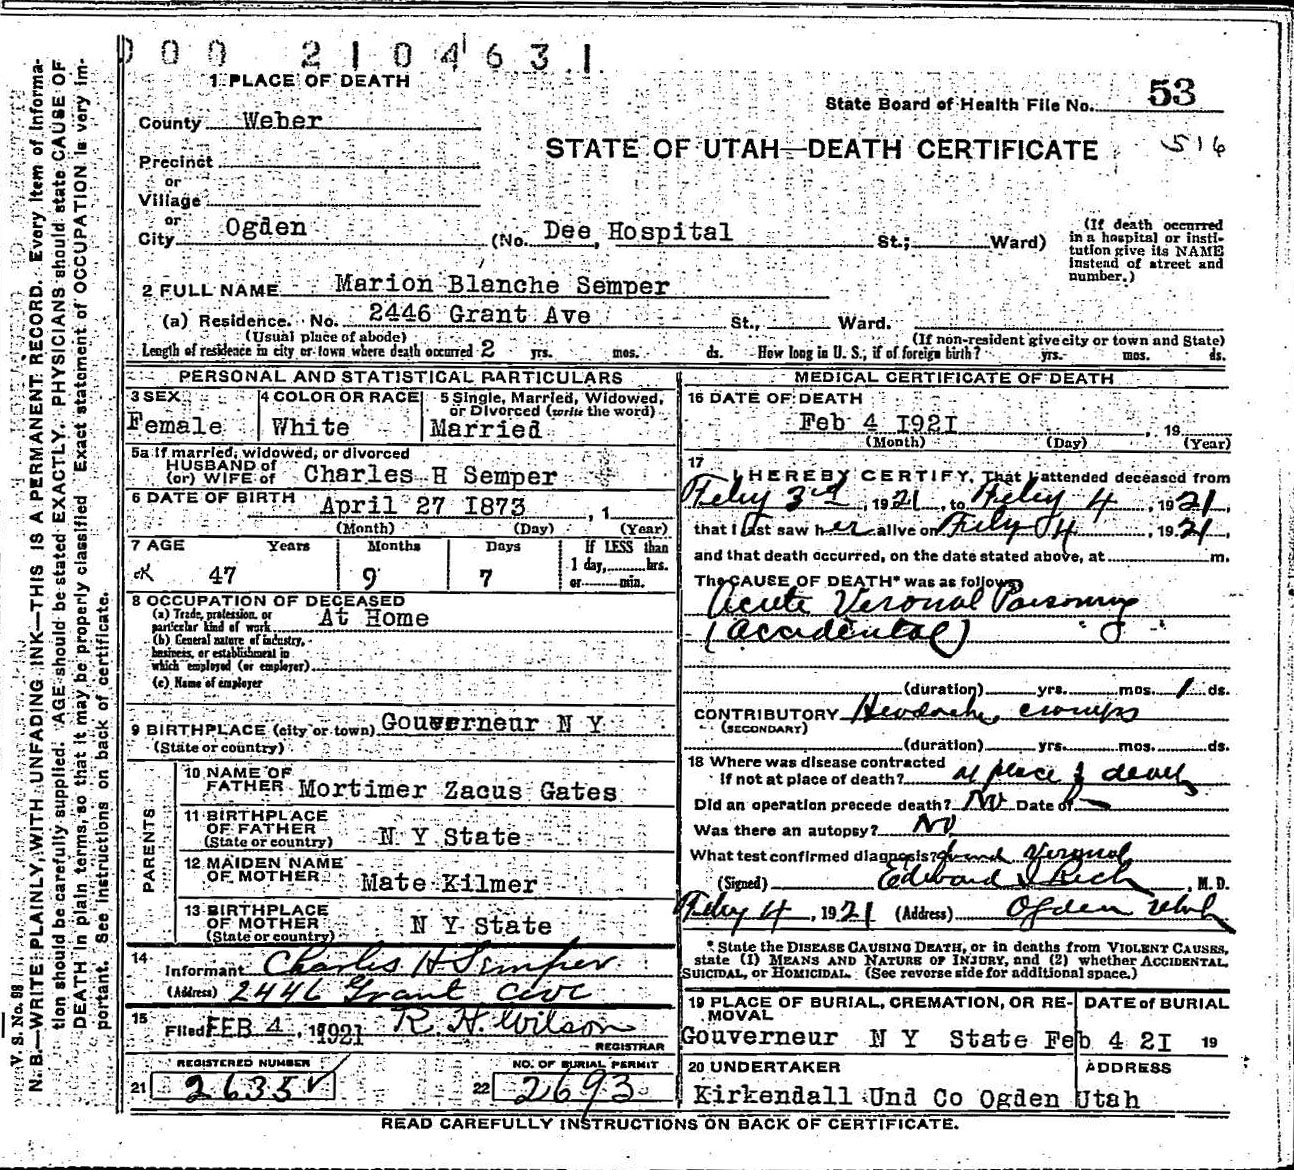 D 0 0 2 1 0 4 6 3 1
1 PLACE OF DEATH
State Board of Health File No. 53
County Weber
516
STATE OF UTAH—DEATH CERTIFICATE
Precinct
or
Village
or
City Ogden (No. Dee, Hospital St.; Ward)
(If death occurred in a hospital or insti-
tution give its NAME
instead of street and
number.)
2 FULL NAME Marion Blanche Semper
(a) Residence. No. 2446 Grant Ave St., Ward.
(Usual place of abode) (If non-resident give city or town and State)
Length of residence in city or town where death occurred 2 yrs. mos. ds. How long in U. S., if of foreign birth? yrs. mos. ds.
PERSONAL AND STATISTICAL PARTICULARS
3 SEX 4 COLOR OR RACE 5 Single, Married, Widowed,
or Divorced (write the word)
Female White Married
5a If married, widowed, or divorced
HUSBAND of
(or) WIFE of Charles H Semper
6 DATE OF BIRTH April 27 I873, 1
(Month) (Day) (Year)
7 AGE Years Months Days If LESS than
1 day, hrs.
or min.
47 9 7
8 OCCUPATION OF DECEASED
(a) Trade, profession, or
particular kind of work At Home
(b) General nature of industry,
business, or establishment in
which employed (or employer)
(c) Name of employer
9 BIRTHPLACE (city or town) Gouverneur N Y
(State or country)
PARENTS
10 NAME OF
FATHER Mortimer Zacus Gates
11 BIRTHPLACE
OF FATHER
(State or country) N Y State
12 MAIDEN NAME
OF MOTHER Mate Kilmer
13 BIRTHPLACE
OF MOTHER
(State or country) N Y State
14
Informant Charles H Semper
(Address) 2446 Grant ave
15
Filed FEB 4, 1921 R. H. Wilson
REGISTRAR
REGISTERED NUMBER NO. OF BURIAL PERMIT
21 2635 22 2693
MEDICAL CERTIFICATE OF DEATH
16 DATE OF DEATH
Feb 4 I92I, 19
(Month) (Day) (Year)
17
I HEREBY CERTIFY, That I attended deceased from
Feby 3rd, 1921, to Feby 4, 1921
that I last saw her alive on Feby 4, 1921,
and that death occurred, on the date stated above, at m.
The CAUSE OF DEATH* was as follows:
Acute Veronal Poisoning
(Accidental)
(duration) yrs. mos. 1 ds.
CONTRIBUTORY Headache, cramps
(SECONDARY)
(duration) yrs. mos. ds.
18 Where was disease contracted
if not at place of death? at place of death
Did an operation precede death? No Date of
Was there an autopsy? No
What test confirmed diagnosis? found Veronal
(Signed) Edward I Rich, M. D.
Feby 4, 1921 (Address) Ogden Utah
* State the DISEASE CAUSING DEATH, or in deaths from VIOLENT CAUSES,
state (1) MEANS AND NATURE OF INJURY, and (2) whether ACCIDENTAL,
SUICIDAL, or HOMICIDAL. (See reverse side for additional space.)
19 PLACE OF BURIAL, CREMATION, OR RE-
MOVAL DATE of BURIAL
Gouverneur N Y State Feb 4 2I 19
20 UNDERTAKER ADDRESS
Kirkendall Und Co Ogden Utah
READ CAREFULLY INSTRUCTIONS ON BACK OF CERTIFICATE.
V. S. No. 98
N. B.—WRITE PLAINLY, WITH UNFADING INK—THIS IS A PERMANENT RECORD. Every item of informa-
tion should be carefully supplied. AGE should be stated EXACTLY. PHYSICIANS should state CAUSE OF
DEATH in plain terms, so that it may be properly classified. Exact statement of OCCUPATION is very im-
portant. See instructions on back of certificate.